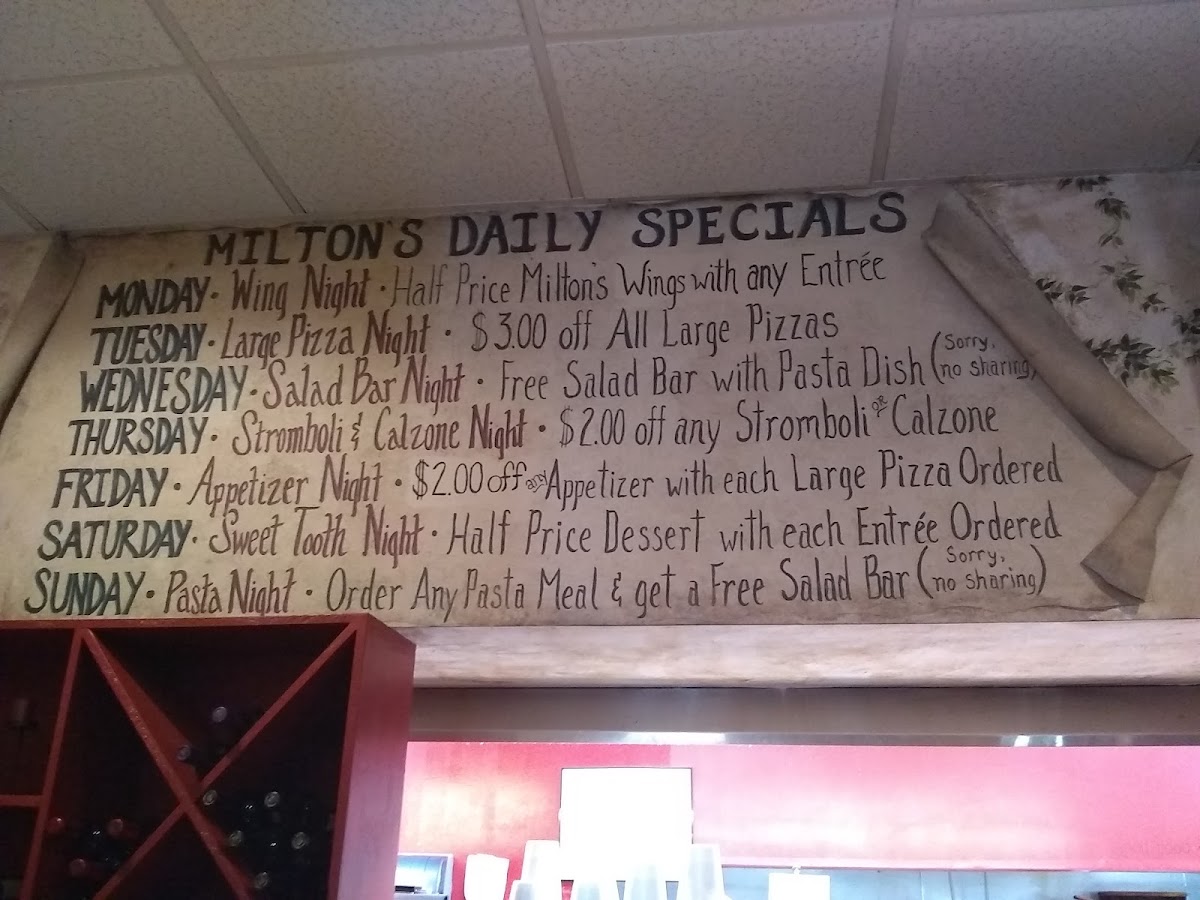 MILTON'S DAILY SPECIALS
MONDAY · Wing Night · Half Price Milton's Wings with any Entrée
TUESDAY · Large Pizza Night · $3.00 off All Large Pizzas
WEDNESDAY · Salad Bar Night · Free Salad Bar with Pasta Dish (Sorry, no sharing)
THURSDAY · Stromboli & Calzone Night · $2.00 off any Stromboli or Calzone
FRIDAY · Appetizer Night · $2.00 off any Appetizer with each Large Pizza Ordered
SATURDAY · Sweet Tooth Night · Half Price Dessert with each Entrée Ordered
SUNDAY · Pasta Night · Order Any Pasta Meal & get a Free Salad Bar (Sorry, no sharing)